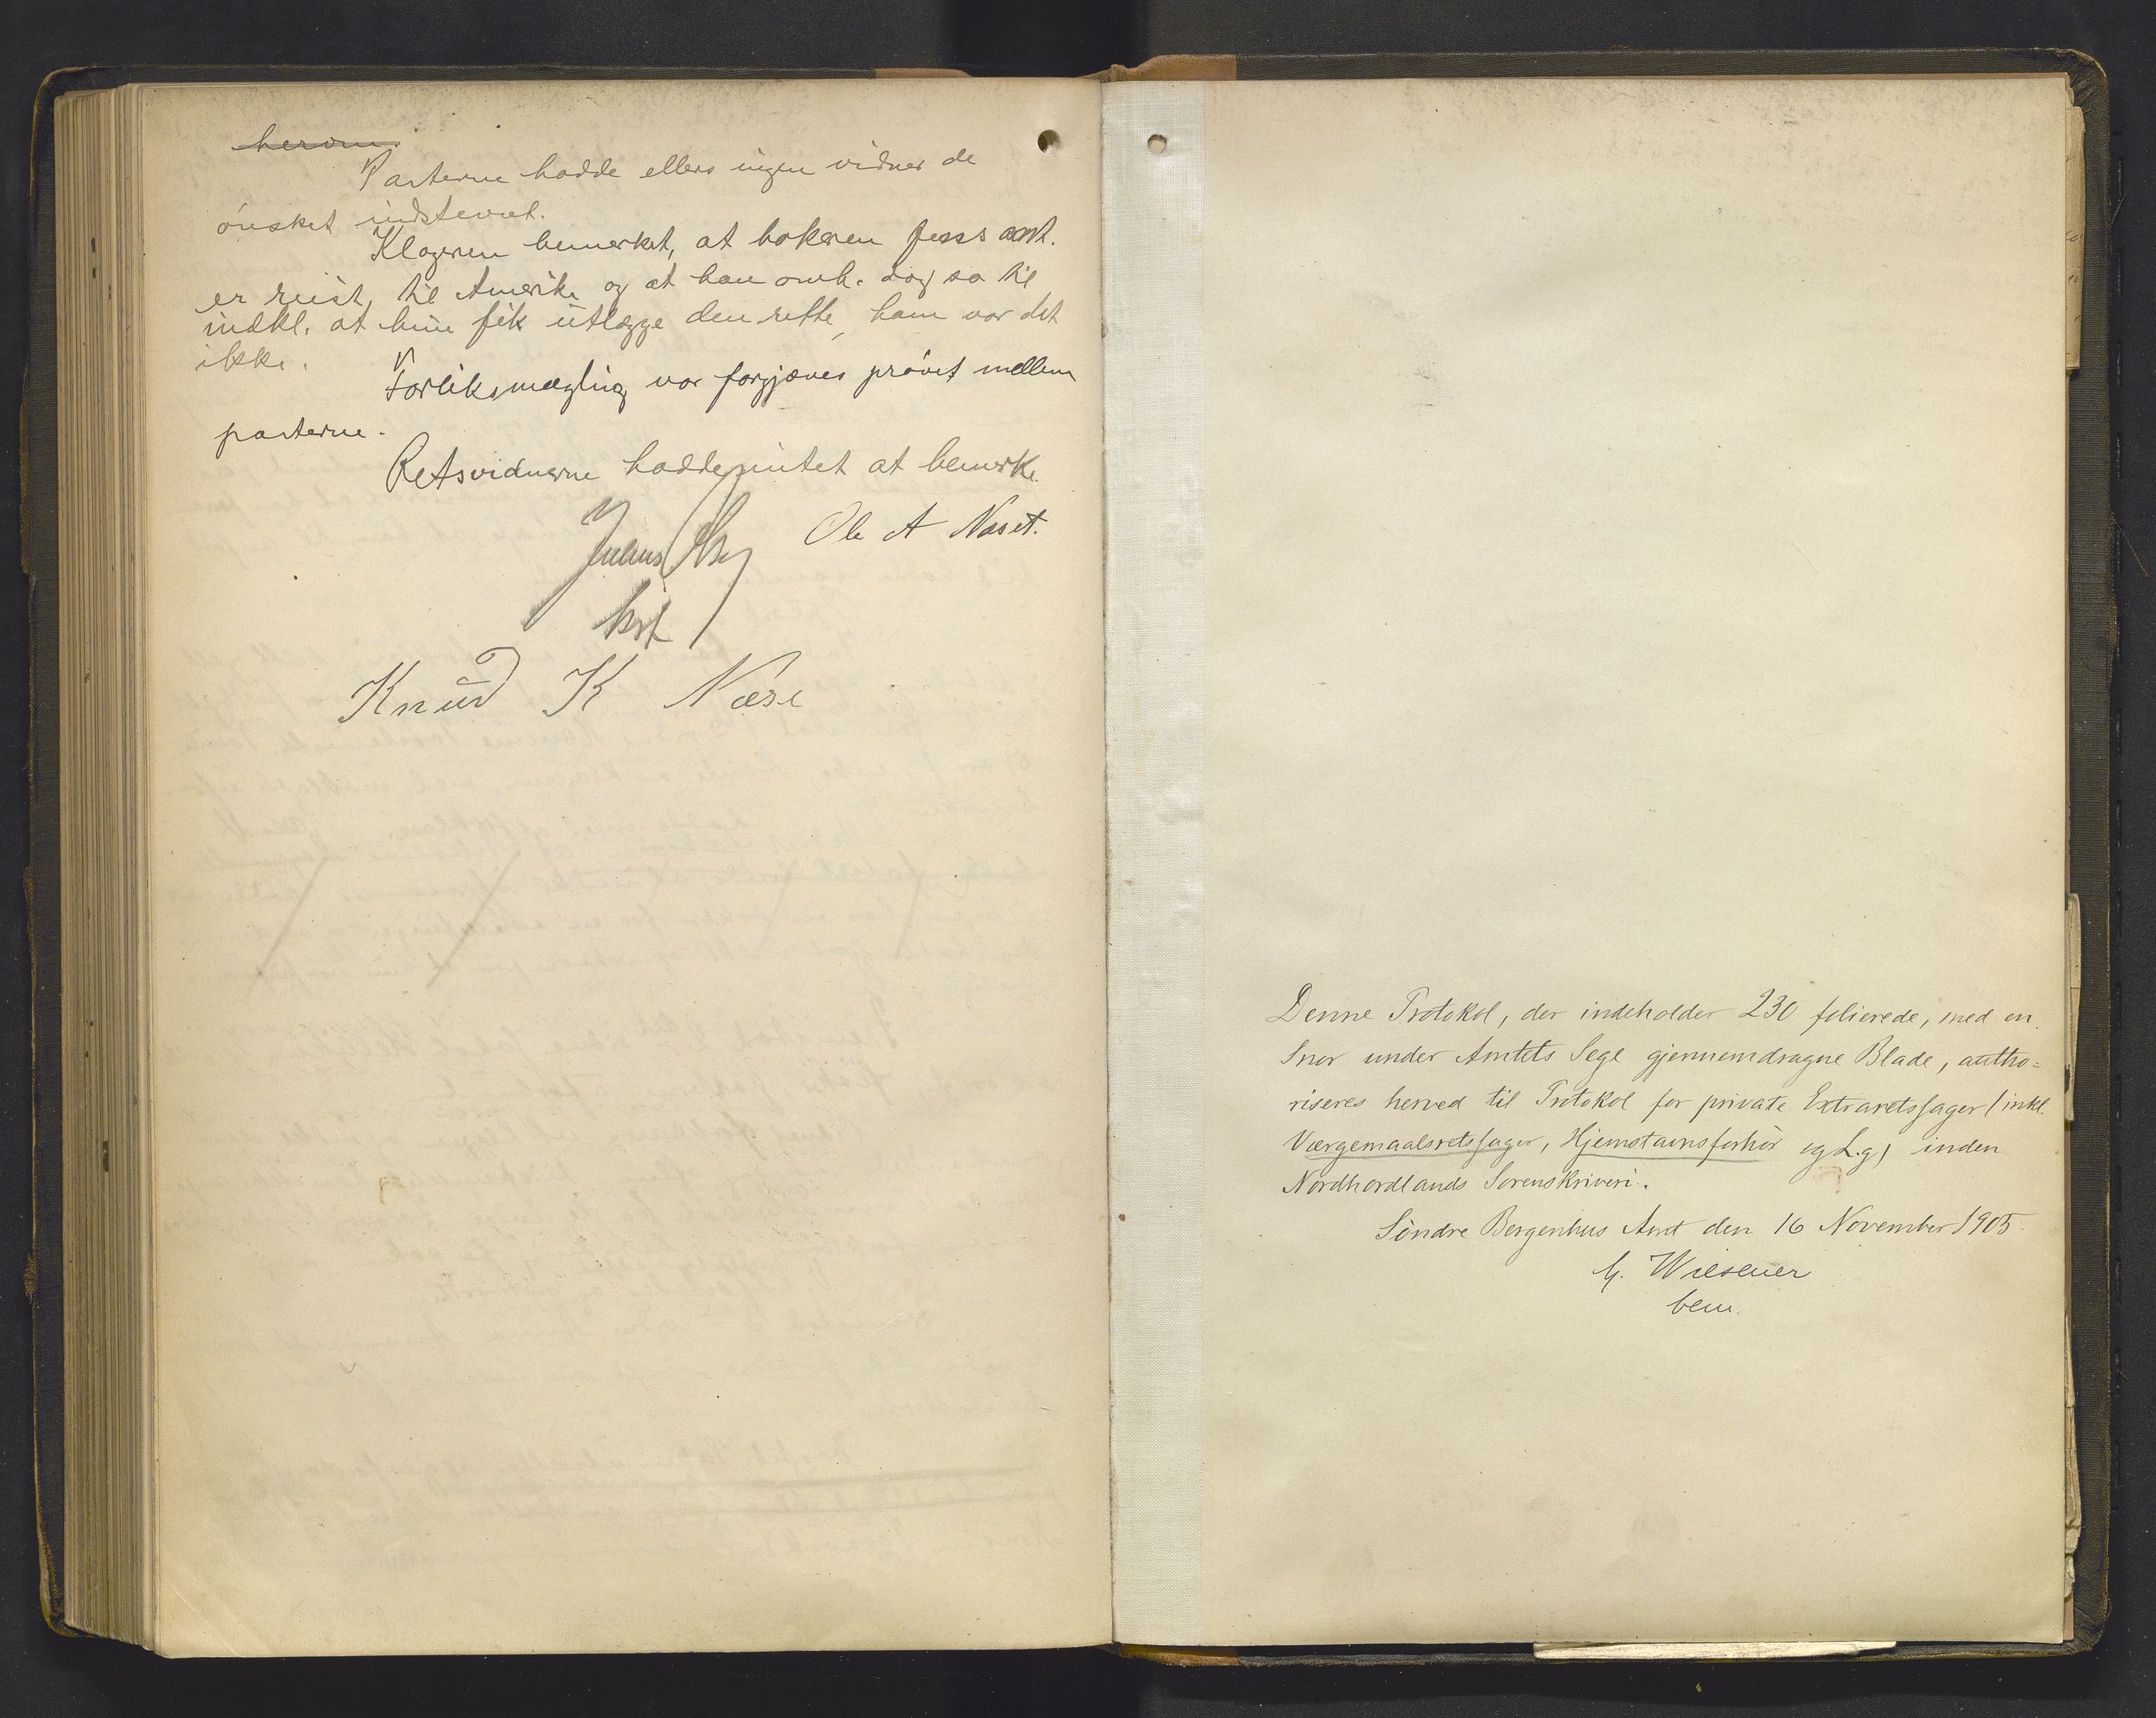 herom.
Parterne hadde ellers ingen vidner de
ønsket indstevnet.
Klageren bemerket, at bokeren Jens amt.
er reist til Amerika og at han omh. dog sa til
indkl. at hun fik utlægge den rette, ham var det
ikke.
Forliksmægling var forgjæves prøvet mellem
parterne.
Retsvidnerne hadde intet at bemerke.
Julius
Ole A Naset.
kst
Knud K Næse
Denne Protokol, der indeholder 230 folierede, med en
Snor under Amtets Segl gjennemdragne Blade, autho=
riseres herved til Protokol for private Extraretssager (inkl.
Værgemaalsretssager, Hjemstavnsforhør og L.g) inden
Nordhordlands Sorenskriveri.
Söndre Bergenhus Amt den 16 November 1905.
G. Wiesener
bem.